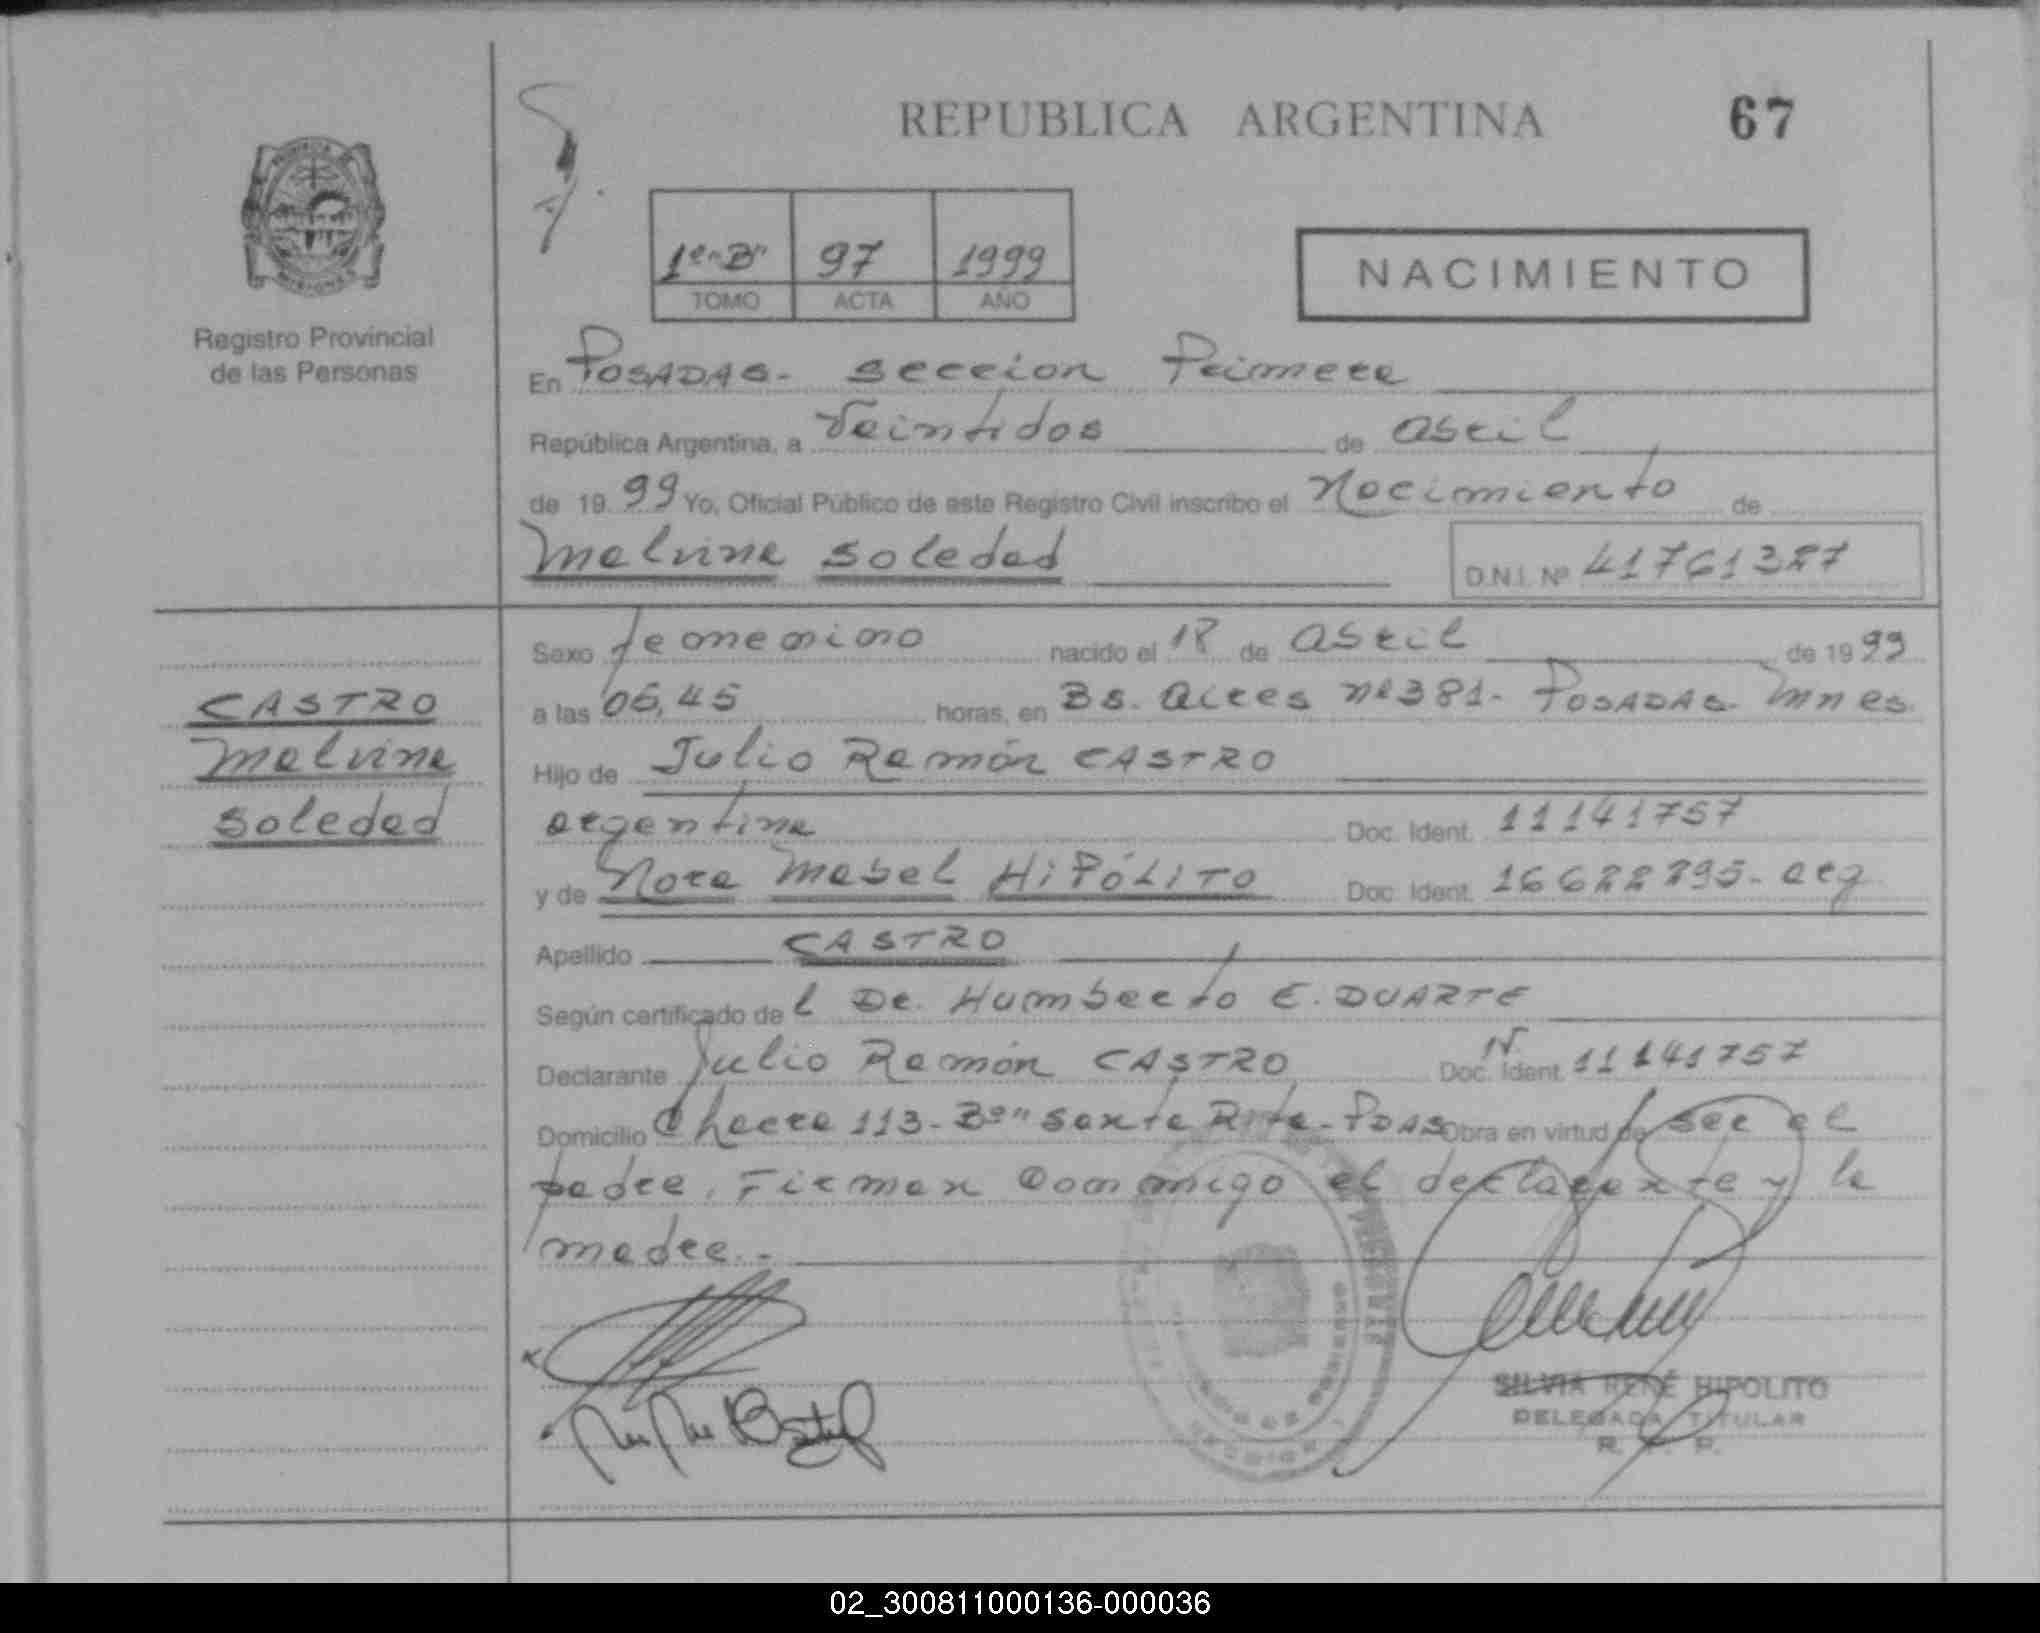 REPUBLICA ARGENTINA
67
1º "B"
97
1999
TOMO
ACTA
AÑO
NACIMIENTO
Registro Provincial
de las Personas
En POSADAS- Seccion Primera
República Argentina, a Veintidos de abril
de 1999 Yo, Oficial Público de este Registro Civil inscribo el Nacimiento de
Malvina Soledad
D.N.I. Nº 41761327
Sexo femenino nacido el 18 de abril de 1999
a las 06,45 horas, en Bs. Aires nº 381- POSADAS- Mnes.
CASTRO
Malvina
Soledad
Hijo de Julio Ramón CASTRO
argentina Doc. Ident. 11141757
y de Nora Mabel HIPÓLITO Doc. Ident. 16622295- arg
Apellido CASTRO
Según certificado del Dr. Humberto E. DUARTE
Declarante Julio Ramón CASTRO Doc. Ident. 11141757
Domicilio Chacra 113- Bº "Santa Rita- PDAS Obra en virtud de ser el
padre. Firman Conmigo el declarante y la
madre.-
SILVIA RENÉ HIPOLITO
DELEGADA TITULAR
R. P. P.
02_300811000136-000036